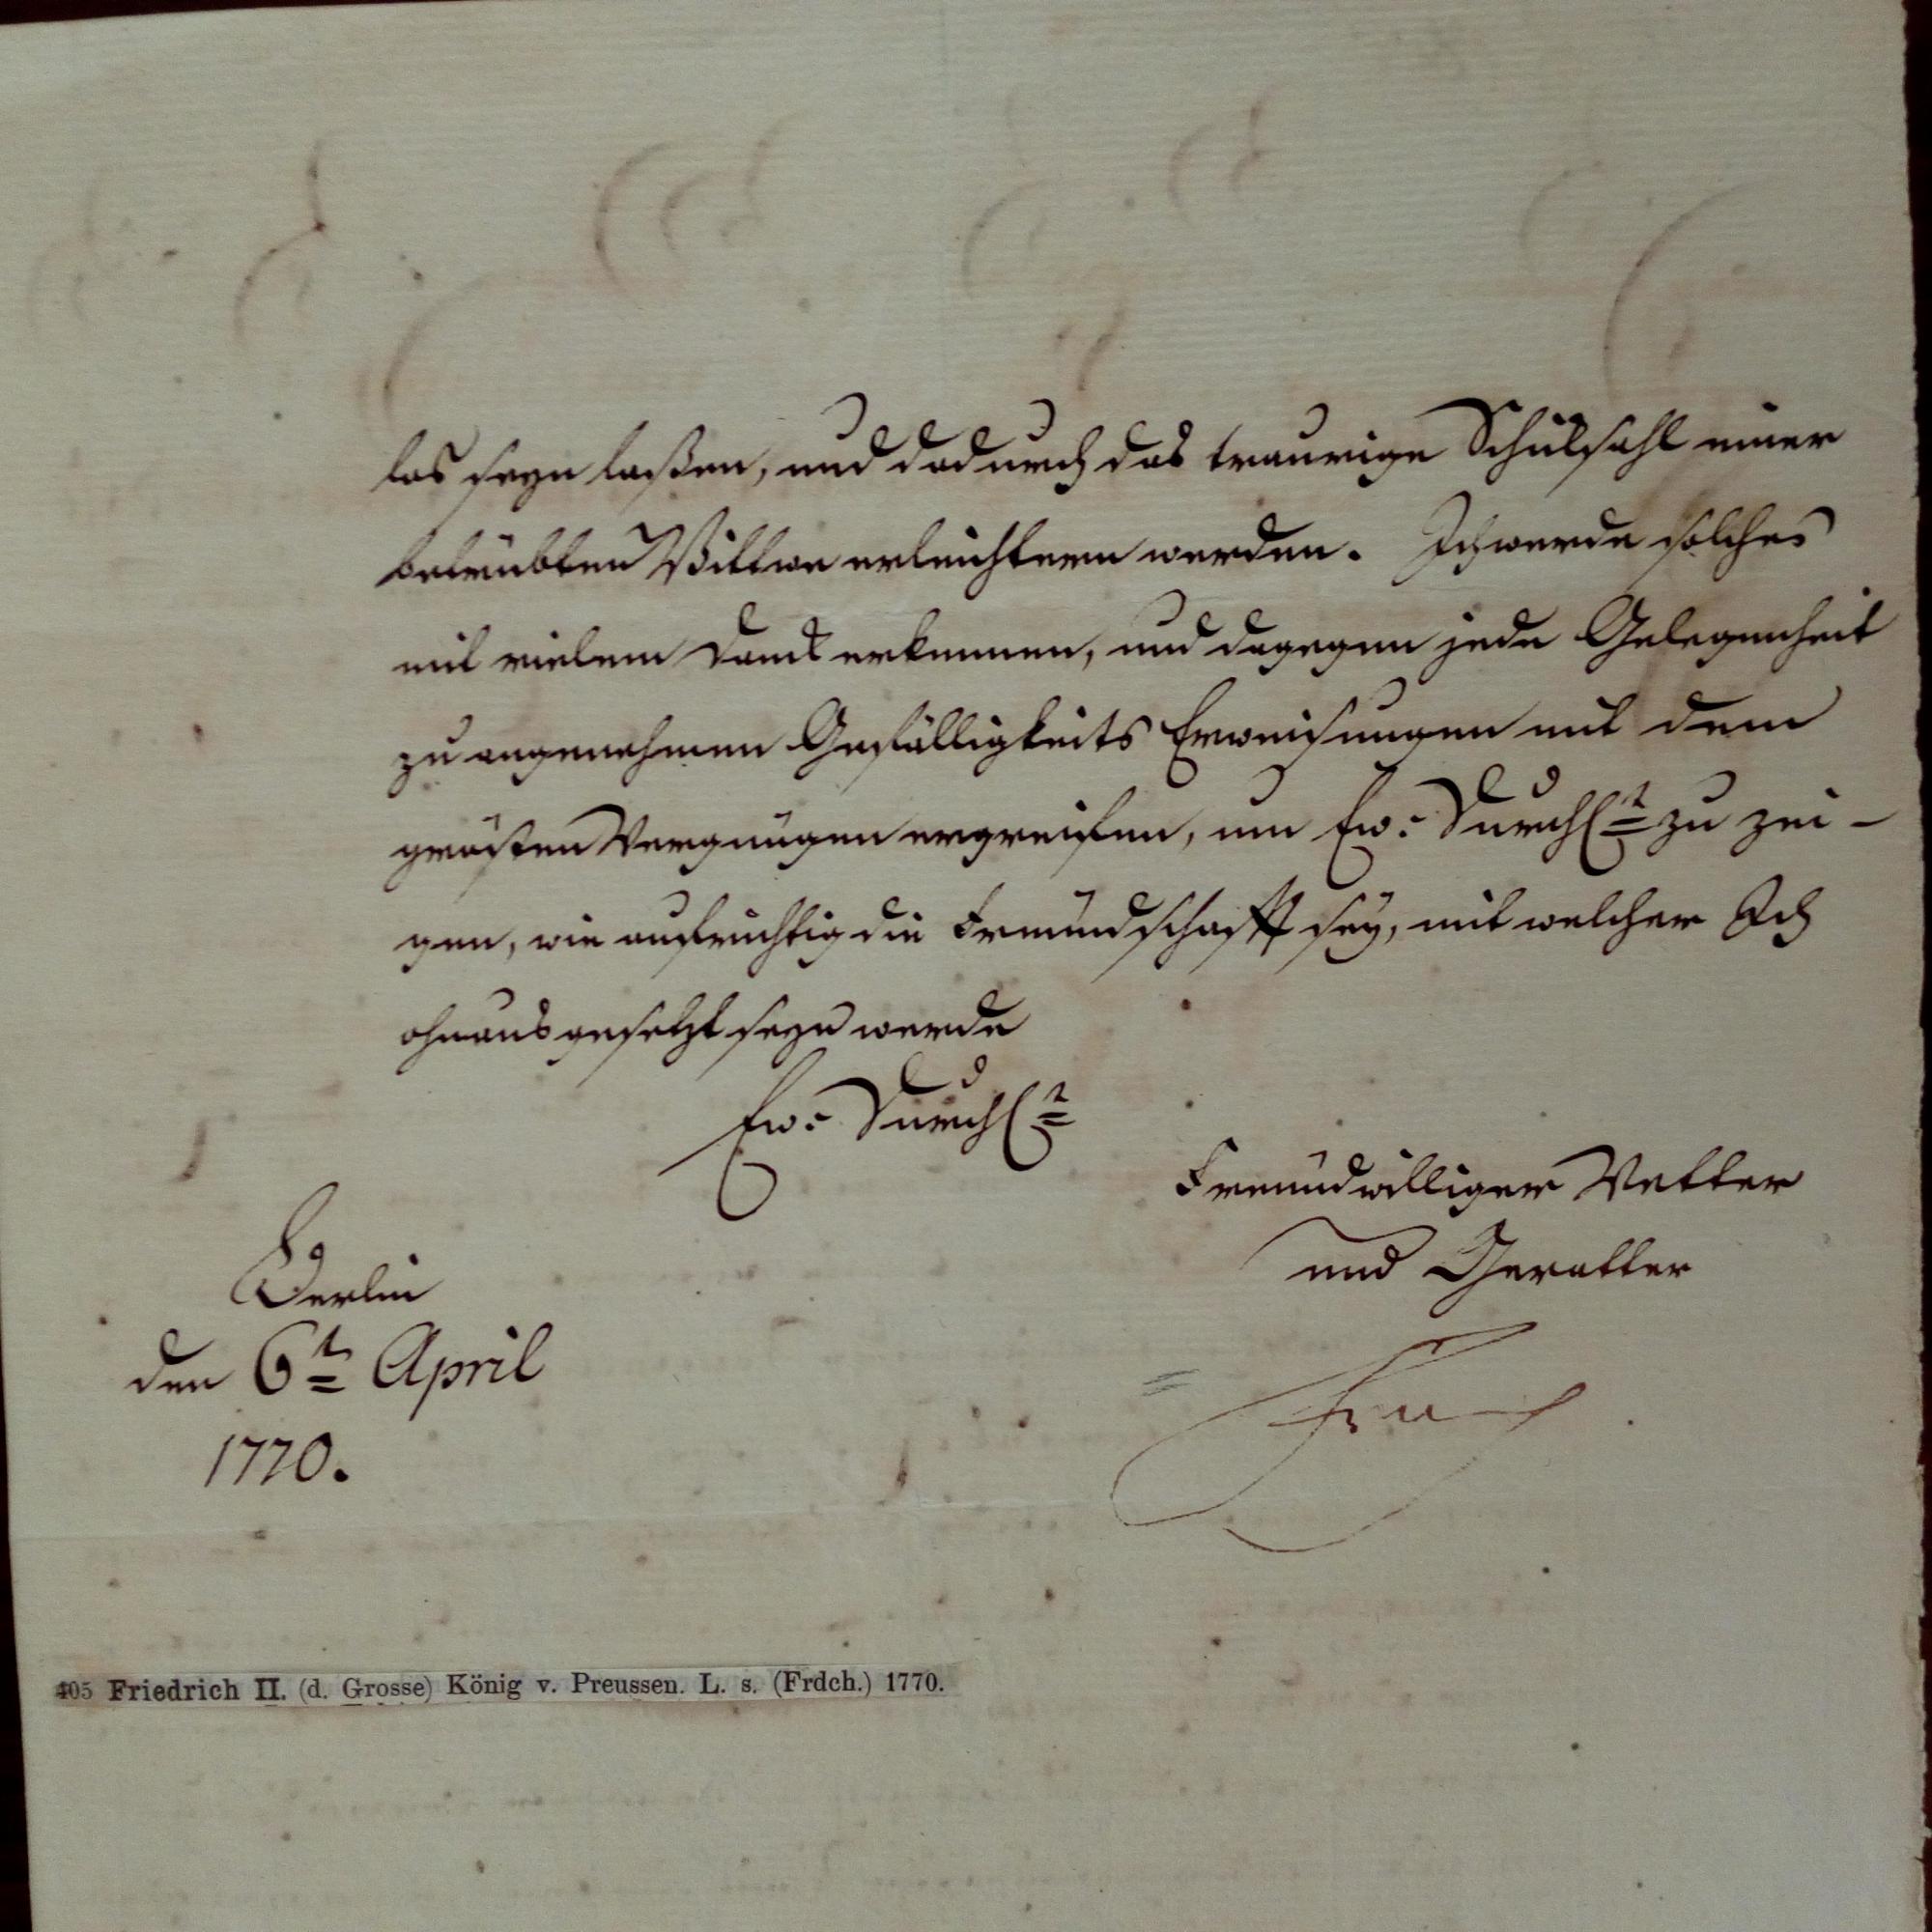 los seyn laßen, und dadurch das traurige Schiksahl einer
betrübten Wittwe erleichtern werden. Ich werde solches
mit vielem Danck erkennen, und dagegen jede Gelegenheit
zu angenehmen Gefälligkeits Erweisungen mit dem
grösten Vergnügen ergreifen, um Ew: Durchl.t zu zei-
gen, wie aufrichtig die Freundschafft sey, mit welcher Ich
ohnausgesetzt seyn werde
Ew: Durchl.t
Freundwilliger Vetter
und Gevatter
Berlin
den 6t April
1770.
Frdch
405 Friedrich II. (d. Grosse) König v. Preussen. L. s. (Frdch.) 1770.